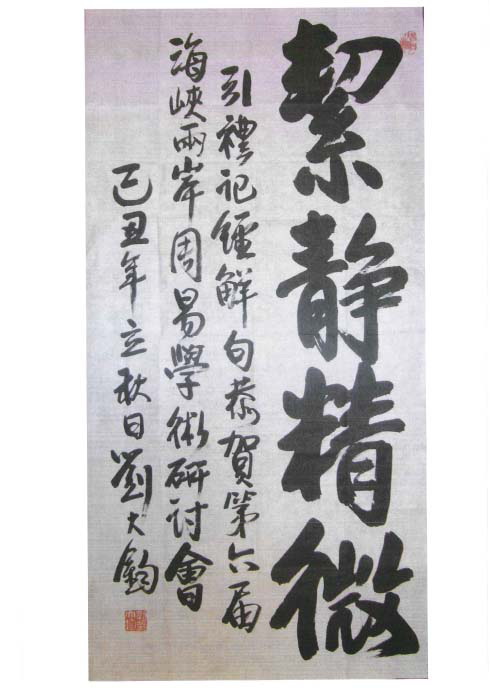 絜靜精微
引禮記經解句恭賀第六届
海峽兩岸周易學術研討會
己丑年立秋日劉大鈞